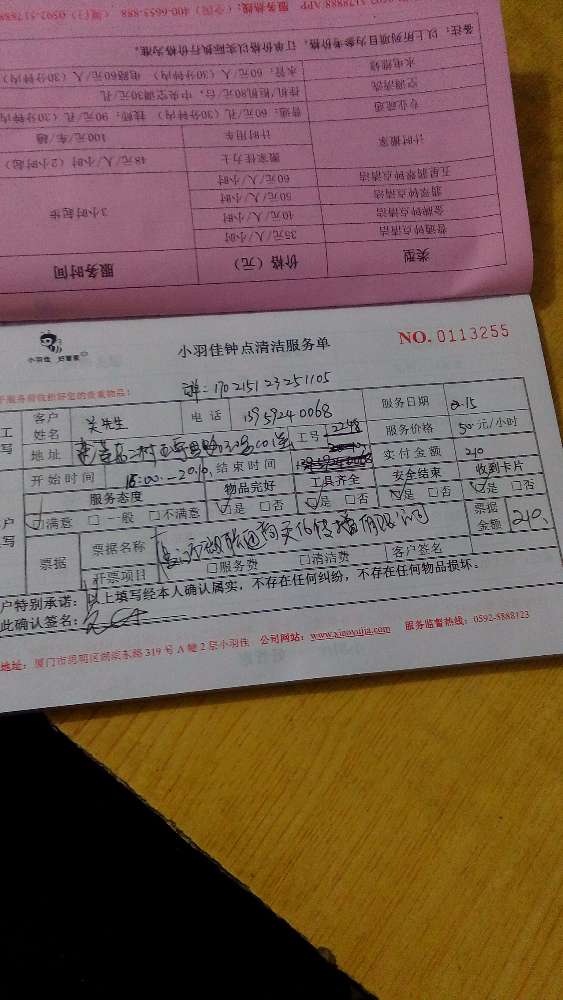 服务热线： 400-6653-888
备注：以上所列项目为参考价格，订单价格以实际执行价格为准。
水电维修 水管：60元/人（30分钟内） 电路60元/人（30分钟内）
空调清洗 挂机/柜机80元/台，中央空调30元/孔
专业疏通 普通：60元/孔（30分钟内） 技师：90元/孔（30分钟内）
计时搬家 计时用车 100元/车/趟
搬家佳力士 48元/人/小时（2小时起）
五星翡翠钟点清洁 60元/人/小时
翡翠钟点清洁 50元/人/小时
金牌钟点清洁 40元/人/小时 3小时起步
普通钟点清洁 35元/人/小时
类型 价格（元） 服务时间
小羽佳 好管家
小羽佳钟点清洁服务单
NO. 0113255
服务前请收拾好您的贵重物品！
单：170215123251105
客户姓名 关先生 电话 13959240068 服务日期 2.15
地址 工号 2248 服务价格 50元/小时
开始时间 结束时间 实付金额 210
服务态度 物品完好 工具齐全 安全结束 收到卡片
☑满意 □一般 □不满意 ☑是 □否 ☑是 □否 ☑是 □否 ☑是 □否
票据 票据名称 票据金额 210.
开票项目 □服务费 □清洁费 客户签名
户特别承诺：以上填写经本人确认属实，不存在任何纠纷，不存在任何物品损坏。
此确认签名：
地址：厦门市思明区湖滨东路319号A幢2层小羽佳 公司网站：www.xiaoyujia.com 服务监督热线：0592-5888123